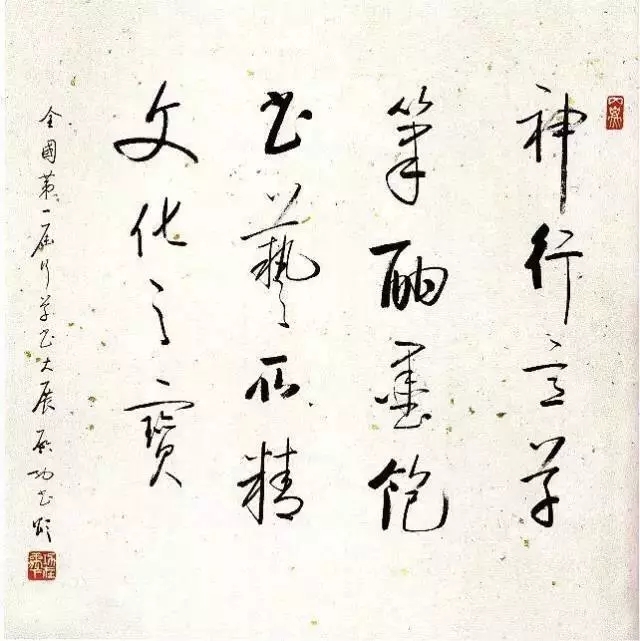 神行言草
筆酣墨飽
書藝所精
文化之寶
全國第一屆行草書大展 啟功書頌